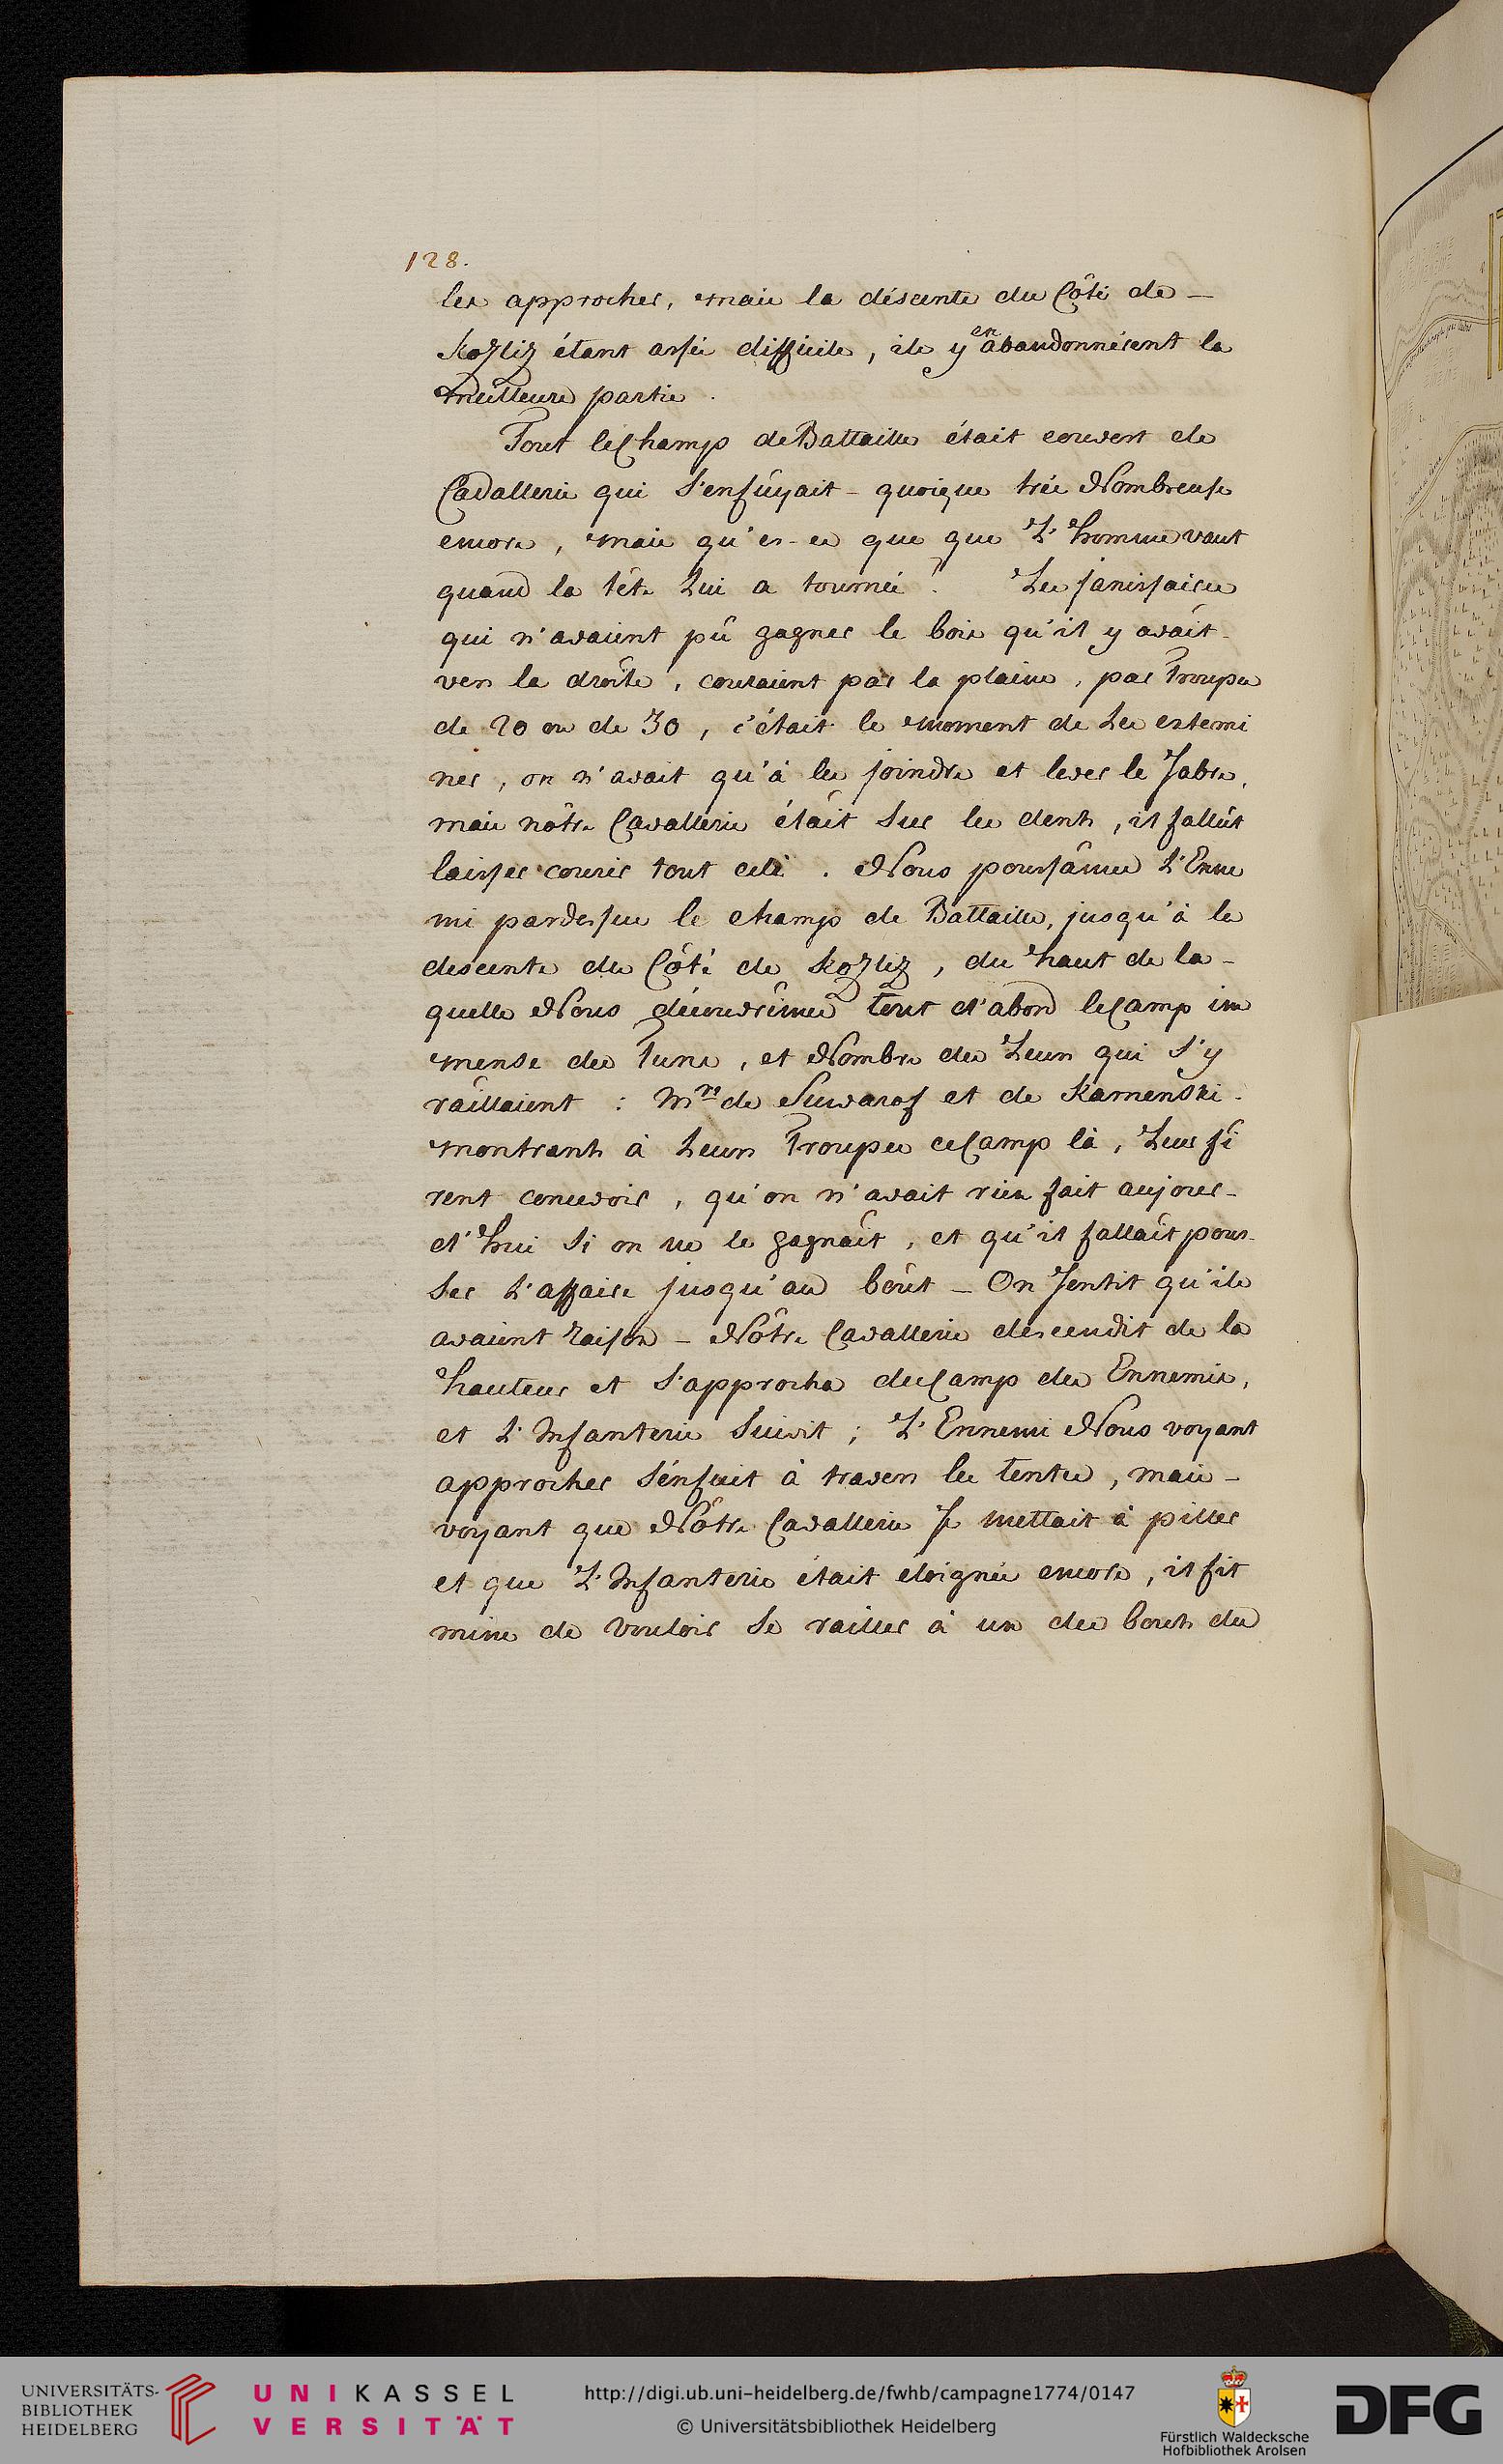 128.
les approcher, mais la déscente du Côté de –
Kozliz étant assés difficile, ils y en abandonnérent la
meilleure partie.
Tout le Champ de Battaille était couvert de
Cavallerie qui s'enfuÿait – quoique trés Nombreuse
encore, mais qu'es-ce que que L'homme vaut
quand la tête Lui a tourné? Les janissaires
qui n'avaient pû gagner le bois qu'il y avait
vers la droite, couraient par la plaine, par Troupes
de 20 ou de 30, c'était le moment de Les extermi
ner, on n'avait qu'à les joindre et lever le Sabre,
mais nôtre Cavallerie était sur les dents, il fallût
laisser courir tout celà. Nous poursâmes L'Enne
mi pardessus le champ de Battaille, jusqu'à la
descente du Côté de Kozliz, du haut de la–
quelle Nous découvrîmes tout d'abord le Camp im
mense des Turcs, et Nombre des Leurs qui s'y
raillaient : Mrs de Suwarof et de Kamenski
montrants à Leurs Troupes ce Camp là, Leur fi
rent concevoir, qu'on n'avait rien fait aujour–
d'hui si on ne le gagnait, et qu'il fallait pous–
ser L'affaire jusqu'au bout – On Sentit qu'ils
avaient raison – Nôtre Cavallerie descendit de la
hauteur et s'approcha du Camp des Ennemis,
et L'Infanterie suivit ; L'Ennemi Nous voyant
approcher s'enfuit à travers les tentes, mais –
voyant que Nôtre Cavallerie Se mettait à piller
et que L'Infanterie était eloignée encore, il fit
mine de vouloir se railler à un des bouts du
UNIVERSITÄTS-
BIBLIOTHEK
HEIDELBERG
UNIKASSEL
VERSITÄT
http://digi.ub.uni-heidelberg.de/fwhb/campagne1774/0147
© Universitätsbibliothek Heidelberg
Fürstlich Waldecksche
Hofbibliothek Arolsen
DFG